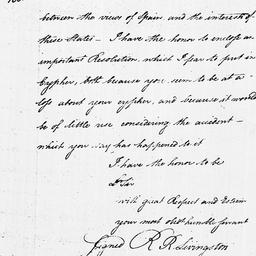 between the views of Spain and the interests of
these States — I have the honor to enclose an
important Resolution which I fear to put in
Cypher, both because you seem to be at a
loss about your cypher, and because it would
be of little use considering the accident —
which you say has happened to it
I have the honor to be
Sir
with great Respect and Esteem
your most obdt humble servant
Signed R R Livingston